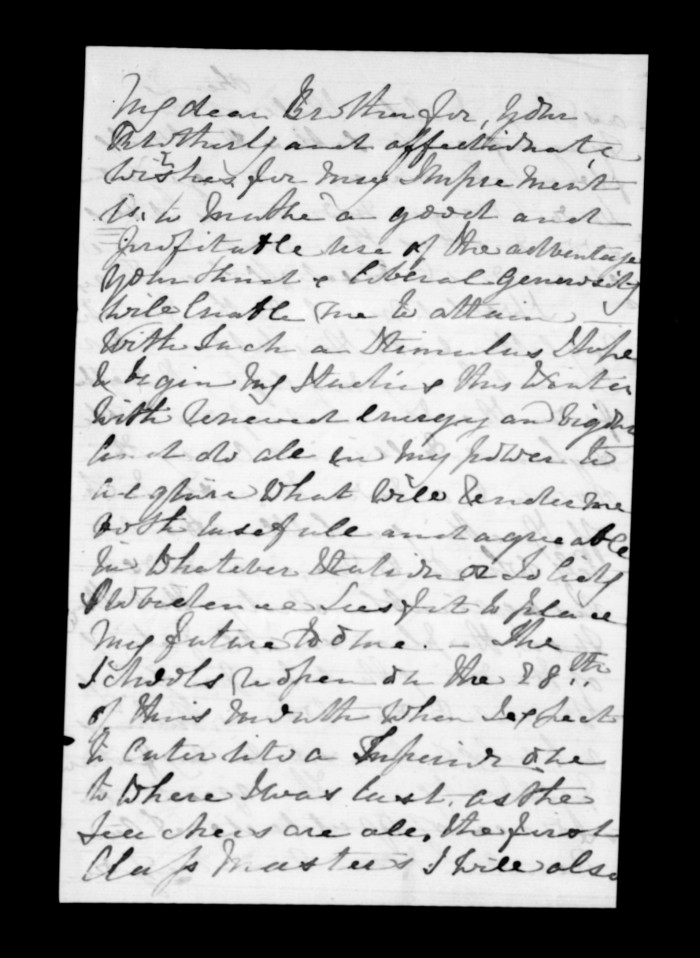 My dear Brother for, your
Brotherly and affectionate
wishes for my Improvement
is to make a good and
profitable use of the advantage
your kind & liberal generosity
will Enable me to attain
With Such a Stimulus I hope
to begin my Studies this Winter
with renewed energy and vigour
and do all in my power to
acquire what will render me
both usefull and agreeable
in whatever Station or Society
Providence Sees fit to place
my future to ome. - The
Schools reopen on the 28th
of this month when I expect
to Enter into a Superior one
to where I was last. as the
Teachers are all, the first
Class Masters I will also